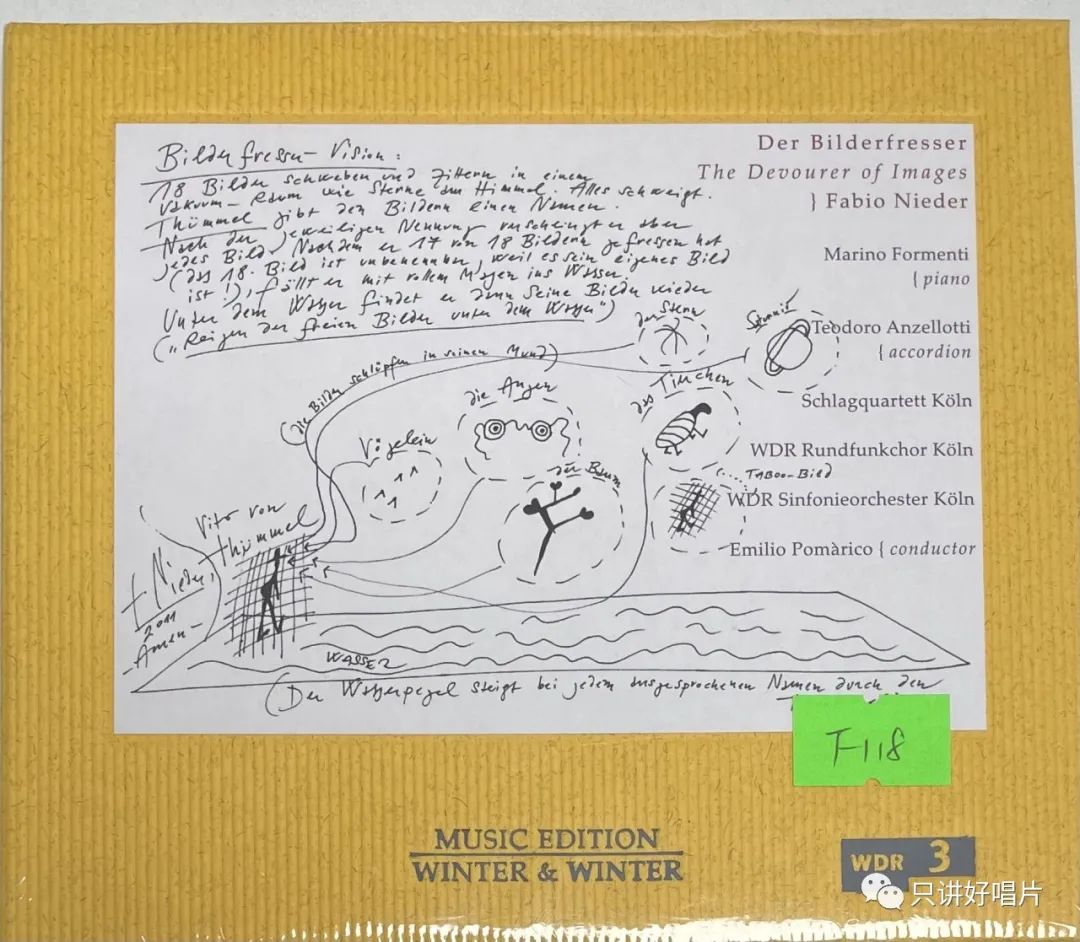 Bilderfresser-Vision:
18 Bilder schweben und zittern in einem
Vakuum-Raum wie Sterne am Himmel. Alles schweigt.
Thümmel gibt den Bildern einen Namen.
Nach der jeweiligen Nennung verschlingt er aber
jedes Bild. Nachdem er 17 von 18 Bildern gefressen hat
(das 18. Bild ist unbenennbar, weil es sein eigenes Bild
ist!), fällt er mit vollem Magen ins Wasser.
Unter dem Wasser findet er dann seine Bilder wieder
("Reigen der freien Bilder unter dem Wasser")
Der Bilderfresser
The Devourer of Images
} Fabio Nieder
Marino Formenti
{ piano
Teodoro Anzellotti
{ accordion
Schlagquartett Köln
WDR Rundfunkchor Köln
WDR Sinfonieorchester Köln
Emilio Pomàrico { conductor
der Stern
Saturnis
(die Bilder schlüpfen in seinen Mund)
die Augen
das Tierchen
Vögelein
der Baum
TABOO-Bild
Vito von
Thümmel
Nieder,
2011
-Amen-
WASSER
(Der Wasserpegel steigt bei jedem ausgesprochenen Namen durch den
T-118
MUSIC EDITION
WINTER & WINTER
WDR 3
只讲好唱片